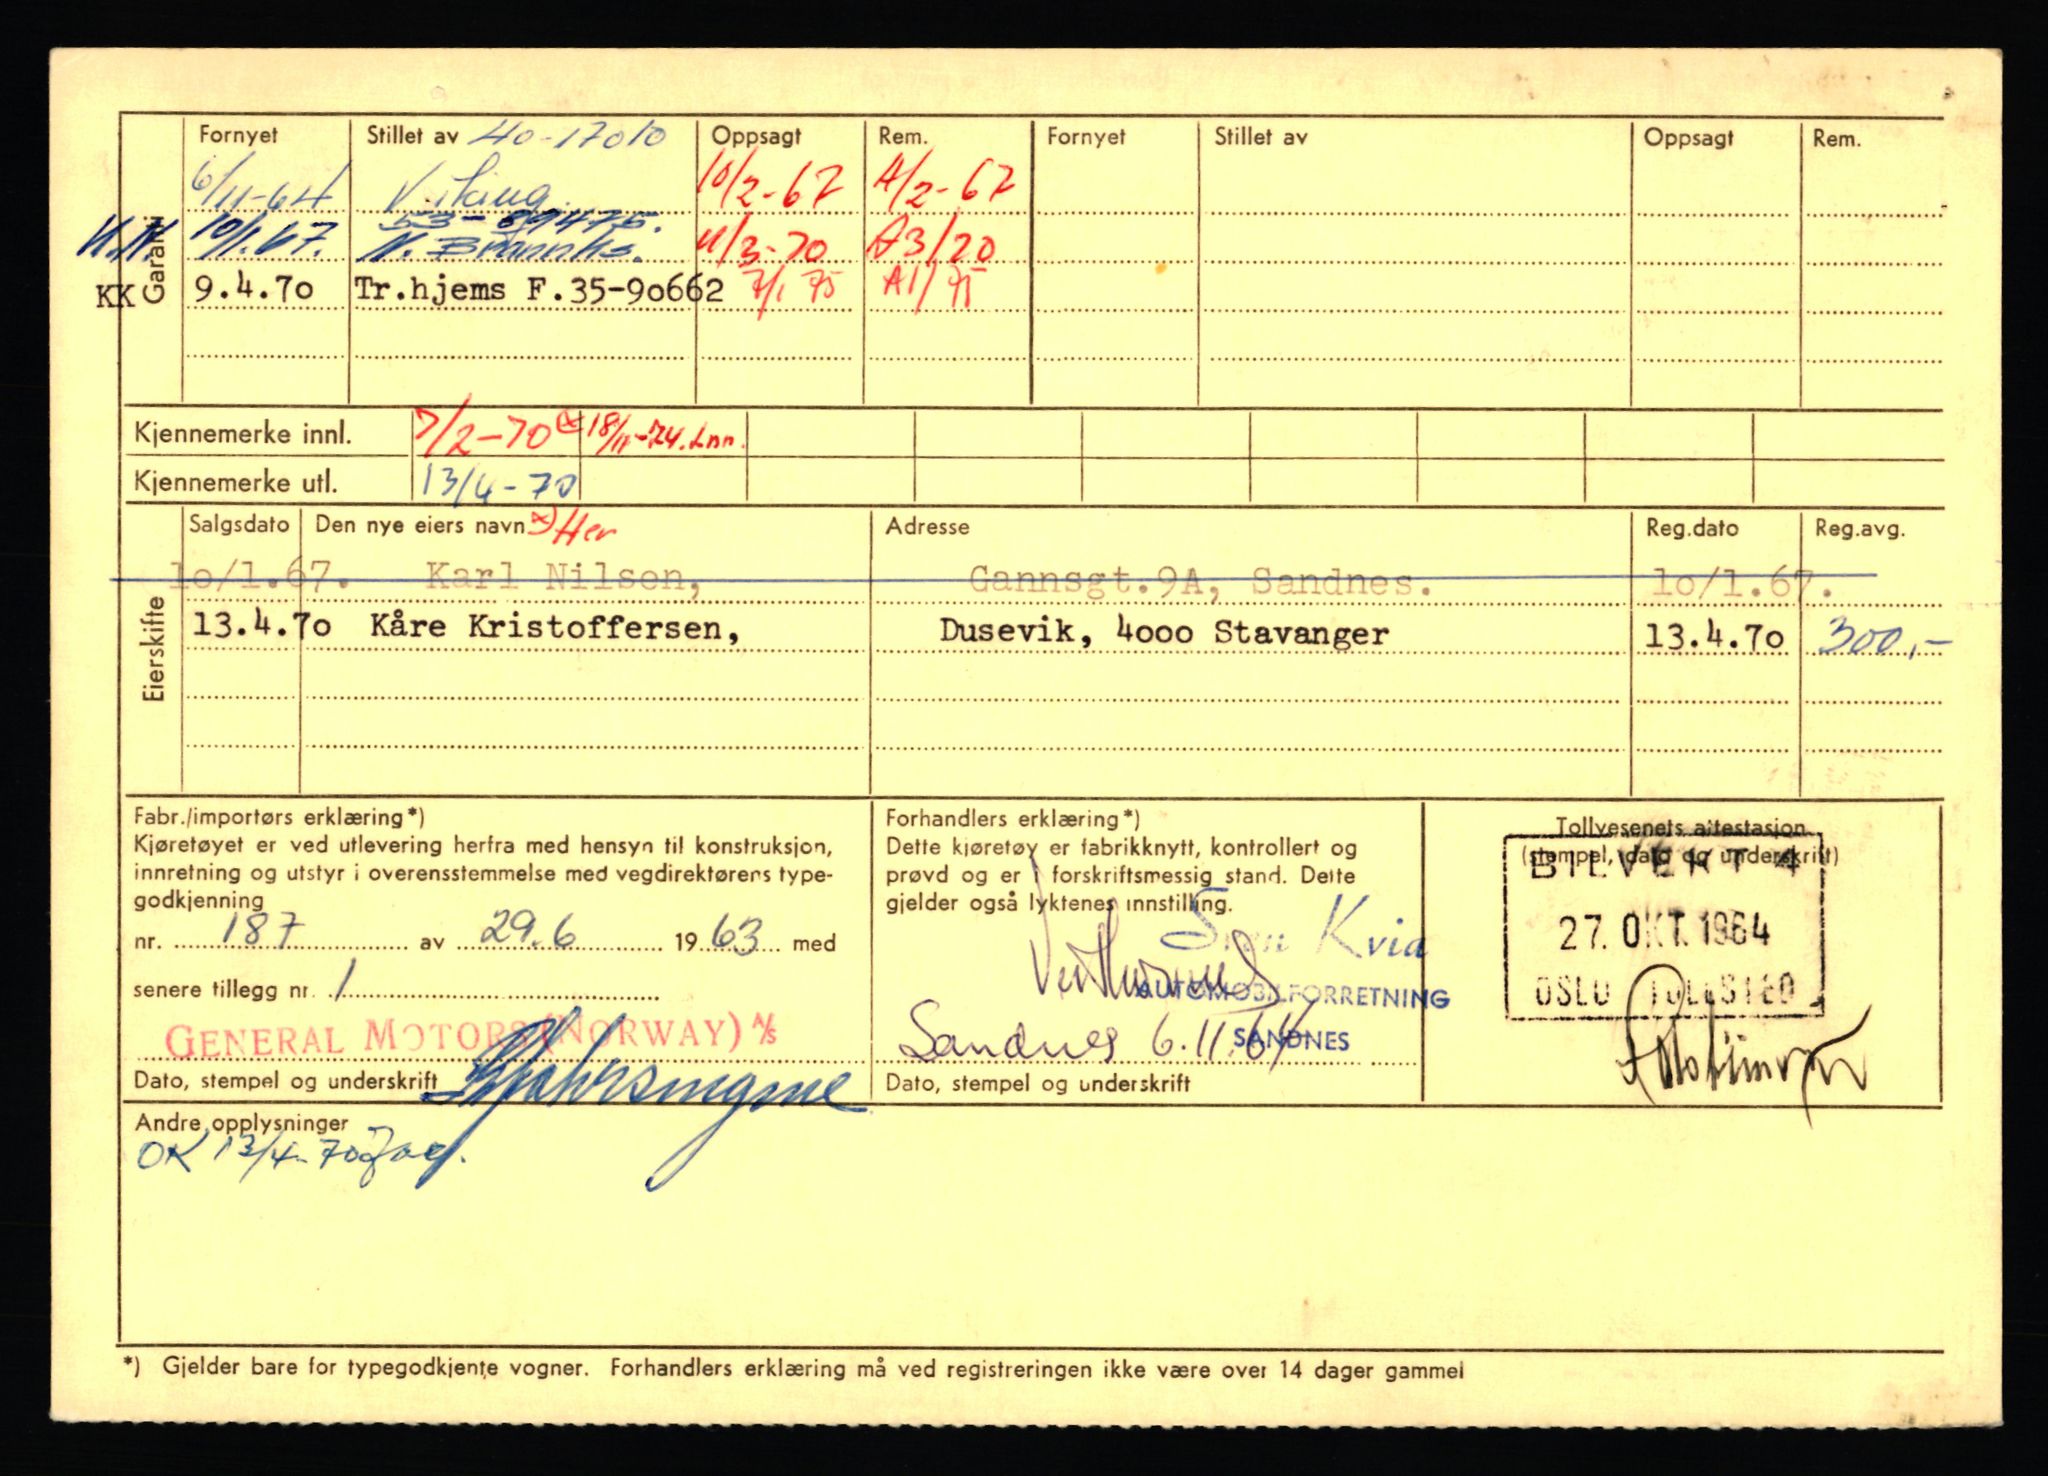 Garanti
Fornyet Stillet av 40-17010 Oppsagt Rem. Fornyet Stillet av Oppsagt Rem.
6/11-64 Viking. 10/2-67 A/2-67
53-89475.
K.N. 10/1.67. N. Brannks. 11/3-70 A3/70
KK 9.4.7o Tr.hjems F.35-9o662 7/1 75 A1/75
Kjennemerke innl. 7/2-70 x) 18/11-74. Lnn.
Kjennemerke utl. 13/4-70
Eierskifte
Salgsdato Den nye eiers navn x) Her Adresse Reg.dato Reg.avg.
1o/1.67. Karl Nilsen, Gannsgt.9A, Sandnes. 1o/1.67.
13.4.7o Kåre Kristoffersen, Dusevik, 4ooo Stavanger 13.4.7o 300,-
Fabr./importørs erklæring*)
Kjøretøyet er ved utlevering herfra med hensyn til konstruksjon,
innretning og utstyr i overensstemmelse med vegdirektørens type-
godkjenning
nr. 187 av 29.6 1963 med
senere tillegg nr. 1
GENERAL MOTORS (NORWAY) A/S
Dato, stempel og underskrift
Forhandlers erklæring*)
Dette kjøretøy er fabrikknytt, kontrollert og
prøvd og er i forskriftsmessig stand. Dette
gjelder også lyktenes innstilling.
Sven Kvia
AUTOMOBILFORRETNING
SANDNES
Sandnes 6.11.64
Dato, stempel og underskrift
Tollvesenets attestasjon
(stempel, dato og underskrift)
BILVEKT 4
27. OKT. 1964
OSLO TOLLSTED
Andre opplysninger
OK 13/4-70
*) Gjelder bare for typegodkjente vogner. Forhandlers erklæring må ved registreringen ikke være over 14 dager gammel